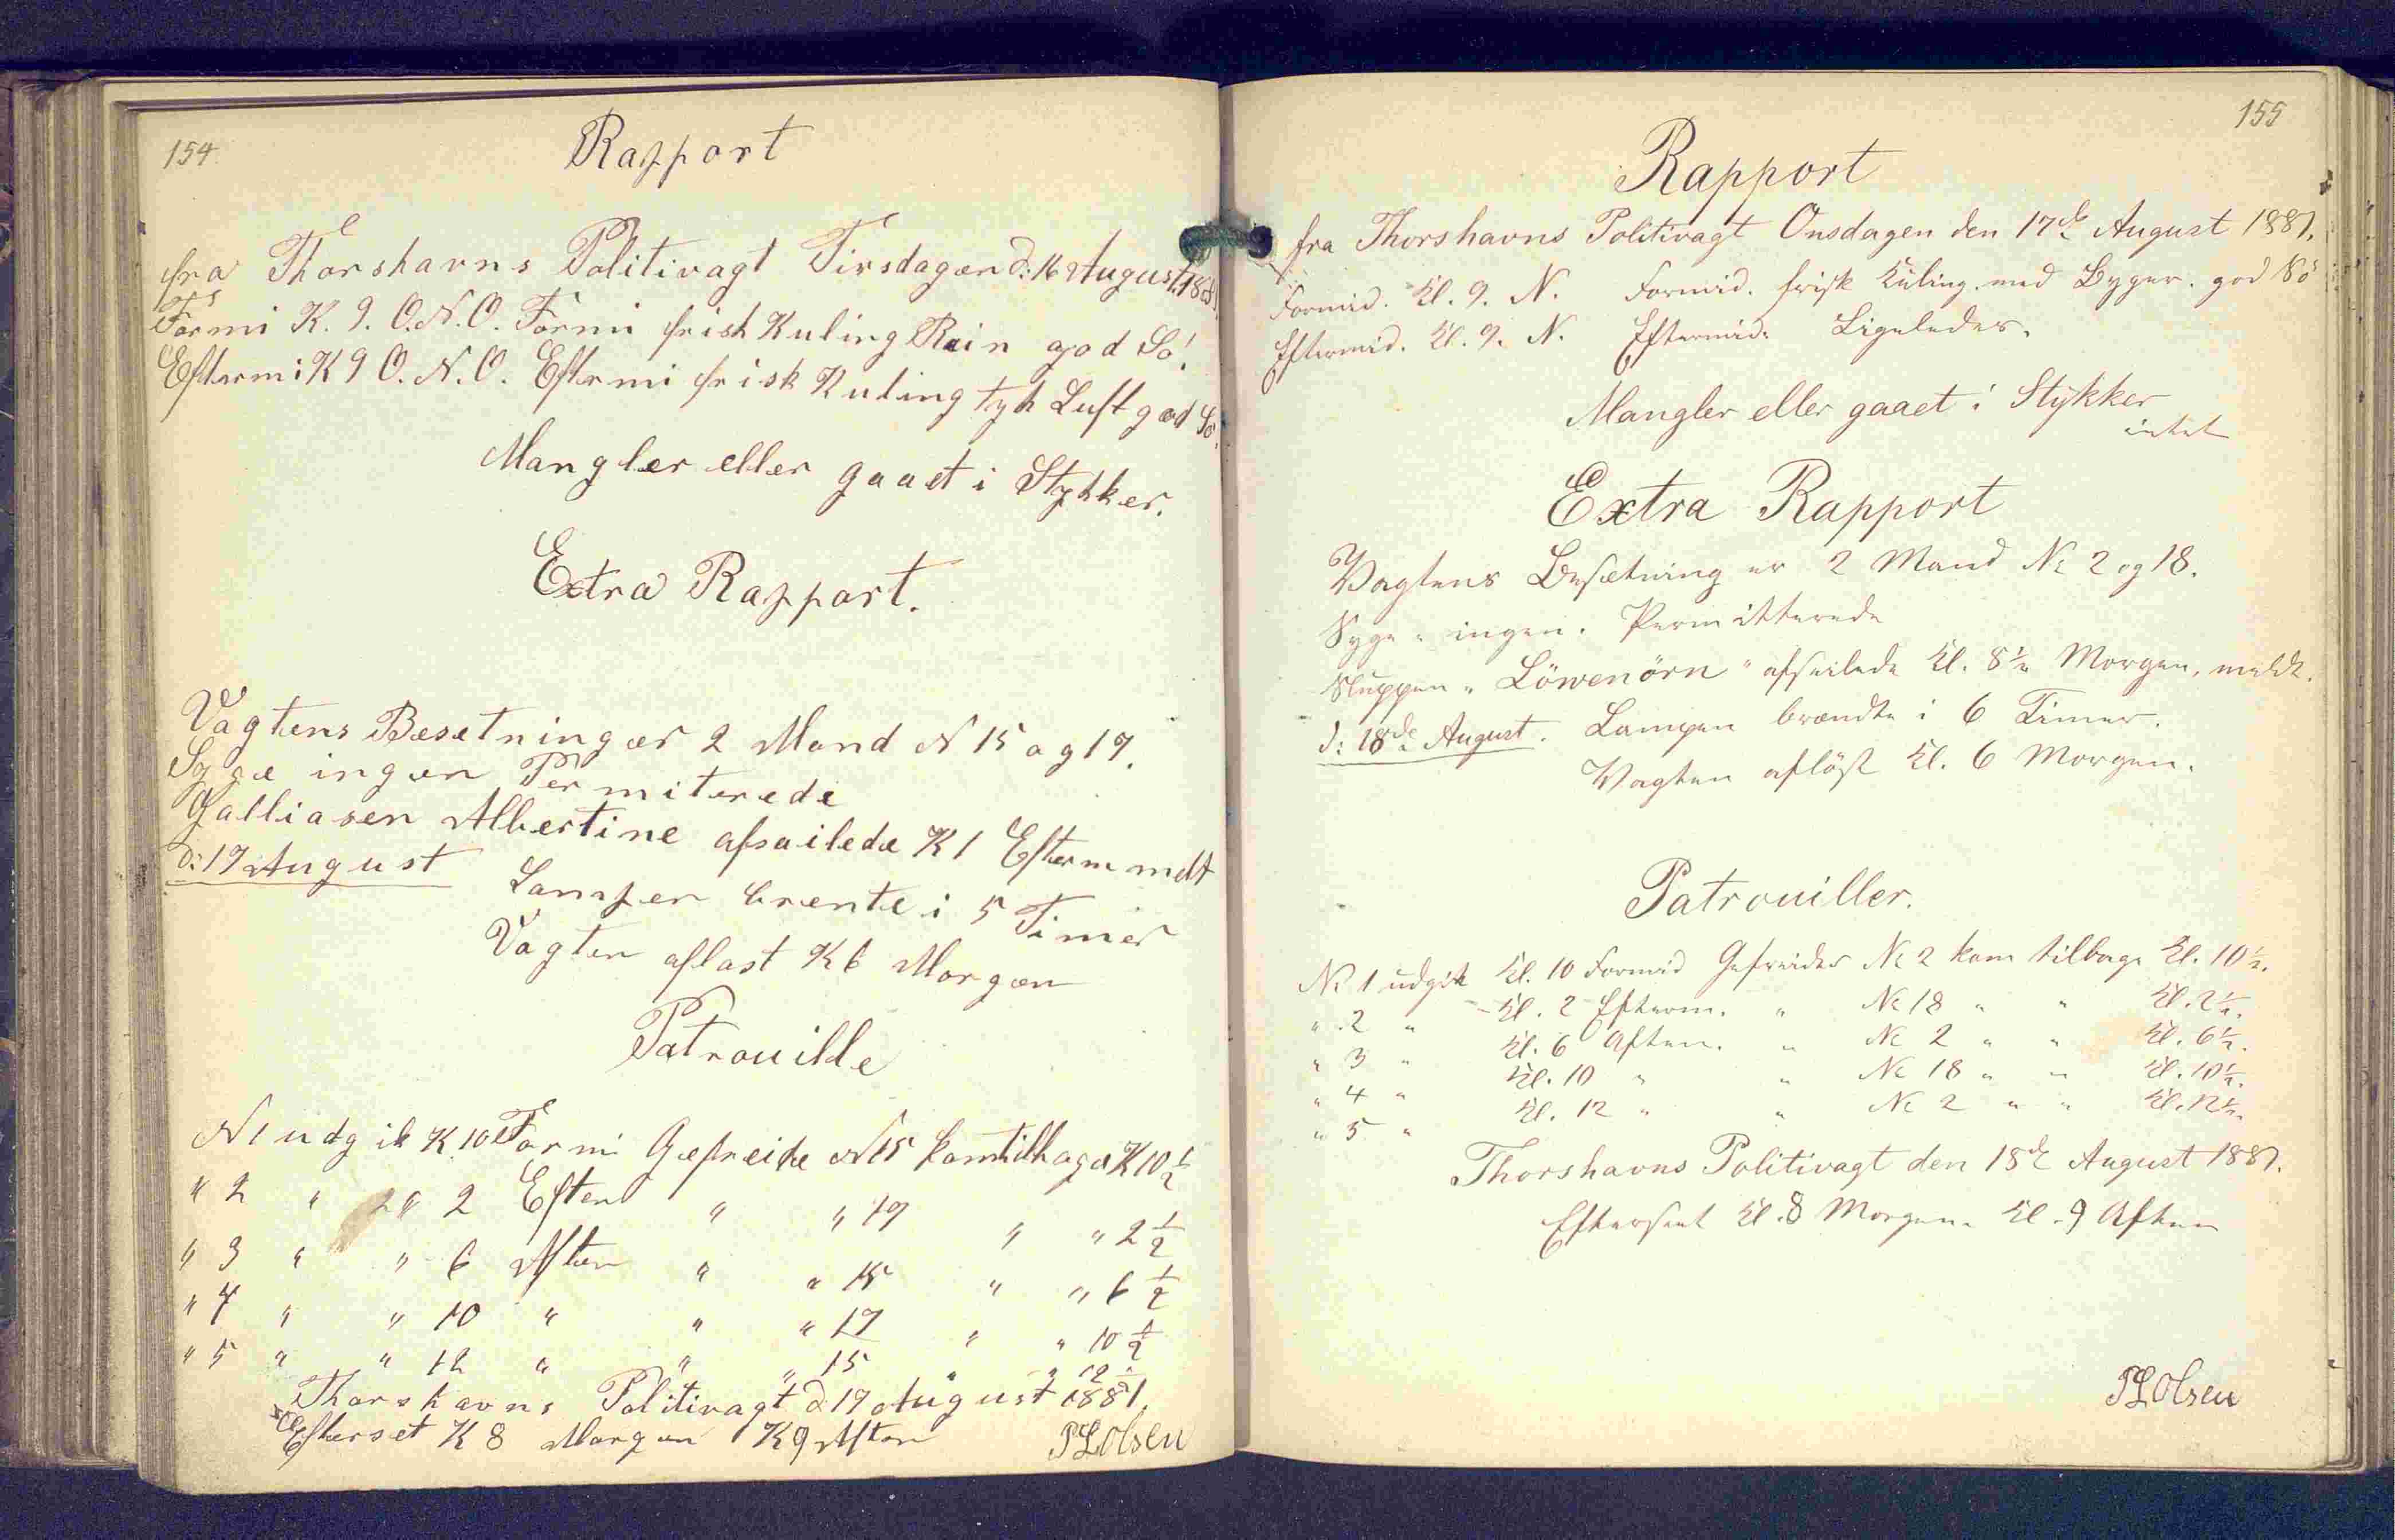 154
Rapport
fra Thorshavns Politivagt Tirsdagen d: 16 August 1881.
Formi K. 9. O.N.O. Formi frisk Kuling Rein god Sö!
Eftermi K 9 O.N.O. Eftermi frisk Kuling tyk Luft god Sö.
Mangler eller gaaet i Stykker.
Extra Rapport.
Vagtens Besetning er 2 Mand N 15 og 17.
Syge ingen Permiterede
Galliasen Albertine afsailede K 1 Efterm mdt
d: 17 August Lampen brente i 5 Timer
Vagten aflast K 6 Morgen
Patrouille
N 1 udgik K 10 Formi Gefreide N 15 kom tilbage K 10 1/2
" 2 " " 2 Efter " " 17 " " 2 1/2
" 3 " " 6 Aften " " 15 " " 6 1/2
" 4 " " 10 " " " 17 " " 10 1/2
" 5 " " 12 " " " 15 " " 12 1/2
Thorshavns Politivagt d 17 August 1881.
Efterset K 8 Morgen K 9 Aften PLOlsen
155
Rapport
fra Thorshavns Politivagt Onsdagen den 17de August 1881.
Formid. Kl. 9. N. Formid. frisk Kuling med Byger. god Sö
Eftermid. Kl. 9. N. Eftermid: Ligeledes.
Mangler eller gaaet i Stykker
intet
Extra Rapport
Vagtens Besætning er 2 Mand No 2 og 18.
Syge " ingen. Permitterede
Sluppen " Löwenörn " afseilede Kl. 8 1/2 Morgen, meldt.
d: 18de August. Lampen brændte i 6 Timer.
Vagten aflöst Kl. 6 Morgen.
Patrouiller.
No 1 udgik Kl. 10 Formid Gefreider No 2 kom tilbage Kl. 10 1/2.
" 2 " Kl. 2 Efterm. " No 18 " " Kl. 2 1/2.
" 3 " Kl. 6 Aften. " No 2 " " Kl. 6 1/2.
" 4 " Kl. 10 " " No 18 " " Kl. 10 1/2.
" 5 " Kl. 12 " " No 2 " " Kl. 12 1/2.
Thorshavns Politivagt den 18de August 1881.
Efterseet Kl. 8 Morgen. Kl. 9 Aften
PLOlsen